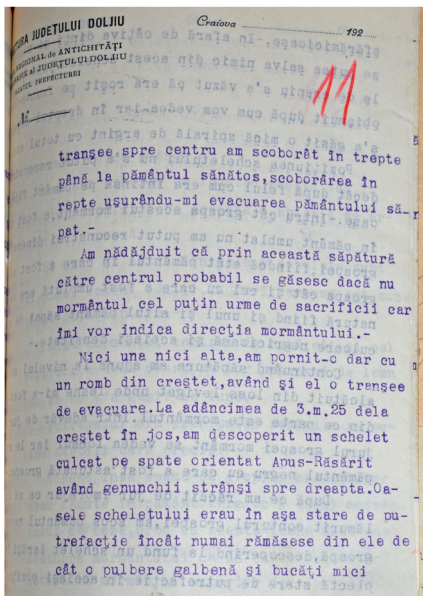 Craiova 192
URA JUDEȚULUI DOLJIU
REGIONAL de ANTICHITĂȚI
al JUDEȚULUI DOLJIU
PREFECTUREI
11
tranșee spre centru am scoborât în trepte
până la pământul sănătos,scoborârea în
repte ușurându-mi evacuarea pământului să-
pat.-
Am nădăjduit că prin această săpătură
către centrul probabil se găsesc dacă nu
mormântul cel puțin urme de sacrificii car
îmi vor indica direcția mormântului.-
Nici una nici alta,am pornit-o dar cu
un romb din creștet,având și el o tranșee
de evacuare.La adâncimea de 3.m.25 dela
creștet în jos,am descoperit un schelet
culcat pe spate orientat Apus-Răsărit
având genunchii strânși spre dreapta.Oa-
sele scheletului erau în așa stare de pu-
trefacție încât numai rămăsese din ele de
cât o pulbere galbenă și bucăți mici